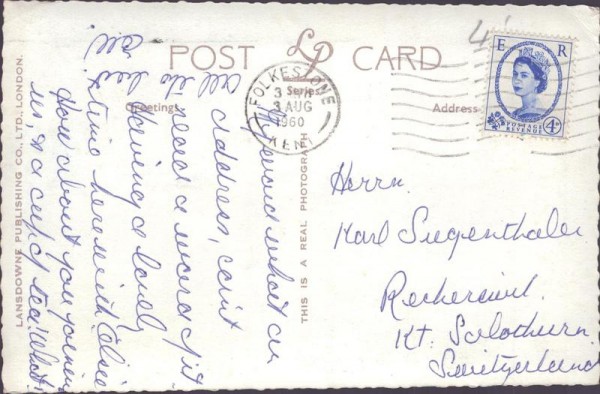 POST CARD
LP
Series
Greetings
Address
FOLKESTONE
KENT
3 AUG
1960
E R
POSTAGE
REVENUE
4D
4'
My word what an
address, can't
read a word of it
Having a lovely
time here with Elsie
How about you joining
us, & a cup of tea! What!
All the best
all
Herrn.
Karl Siegenthaler
Recherswil.
Kt. Solothurn.
Switzerland
THIS IS A REAL PHOTOGRAPH
LANSDOWNE PUBLISHING CO., LTD., LONDON.